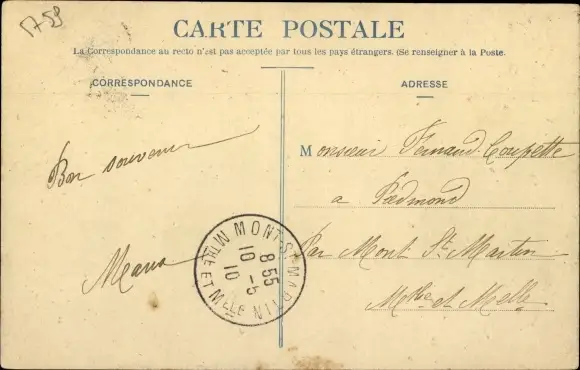 1758
CARTE POSTALE
La Correspondance au recto n'est pas acceptée par tous les pays étrangers. (Se renseigner à la Poste.
CORRESPONDANCE
ADRESSE
Bon souvenir
Monsieur Fernand Coupette
a Piedmond
Par Mont St. Martin
Mthe et Melle
MONT-ST-MARTIN
8 55
10 -5
10
MTHE ET MLLE